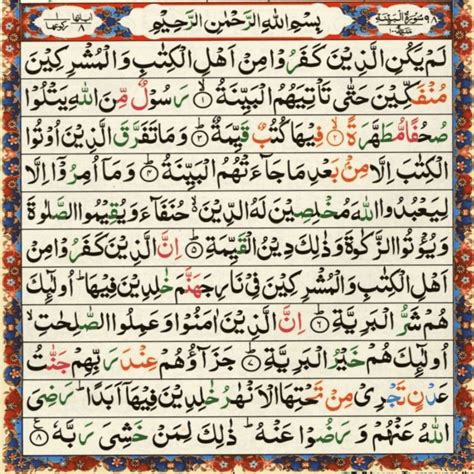 ٩٨ سُوْرَةُ الْبَيِّنَةِ
بِسْمِ اللهِ الرَّحْمٰنِ الرَّحِيْمِ
اٰيَاتُهَا ٨ رُكُوْعُهَا ١
لَمْ يَكُنِ الَّذِيْنَ كَفَرُوْا مِنْ اَهْلِ الْكِتٰبِ وَالْمُشْرِكِيْنَ
مُنْفَكِّيْنَ حَتّٰى تَاْتِيَهُمُ الْبَيِّنَةُ ۝١ رَسُوْلٌ مِّنَ اللهِ يَتْلُوْا
صُحُفًا مُّطَهَّرَةً ۝٢ فِيْهَا كُتُبٌ قَيِّمَةٌ ۝٣ وَمَا تَفَرَّقَ الَّذِيْنَ اُوْتُوا
الْكِتٰبَ اِلَّا مِنْۢ بَعْدِ مَا جَآءَتْهُمُ الْبَيِّنَةُ ۝٤ وَمَاۤ اُمِرُوْۤا اِلَّا
لِيَعْبُدُوا اللهَ مُخْلِصِيْنَ لَهُ الدِّيْنَ ۙ حُنَفَآءَ وَيُقِيْمُوا الصَّلٰوةَ
وَيُؤْتُوا الزَّكٰوةَ وَذٰلِكَ دِيْنُ الْقَيِّمَةِ ۝٥ اِنَّ الَّذِيْنَ كَفَرُوْا مِنْ
اَهْلِ الْكِتٰبِ وَالْمُشْرِكِيْنَ فِيْ نَارِ جَهَنَّمَ خٰلِدِيْنَ فِيْهَا ؕ اُولٰٓئِكَ
هُمْ شَرُّ الْبَرِيَّةِ ۝٦ اِنَّ الَّذِيْنَ اٰمَنُوْا وَعَمِلُوا الصّٰلِحٰتِ ۙ
اُولٰٓئِكَ هُمْ خَيْرُ الْبَرِيَّةِ ۝٧ جَزَآؤُهُمْ عِنْدَ رَبِّهِمْ جَنّٰتُ
عَدْنٍ تَجْرِيْ مِنْ تَحْتِهَا الْاَنْهٰرُ خٰلِدِيْنَ فِيْهَاۤ اَبَدًا ؕ رَضِيَ
اللهُ عَنْهُمْ وَرَضُوْا عَنْهُ ؕ ذٰلِكَ لِمَنْ خَشِيَ رَبَّهٗ ۝٨